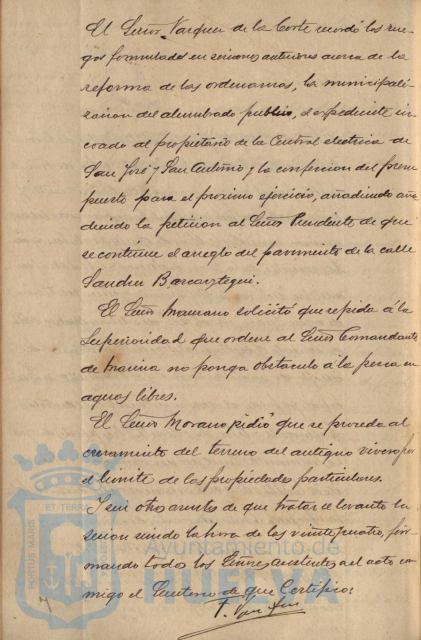 El Señor Vazquez de la Corte recordó los rue-
gos formulados en sesiones anteriores acerca de la
reforma de las ordenanzas, la municipali-
zacion del alumbrado publico, el expediente in-
coado al propietario de la Central electrica de
San José y San Antonio y la confeccion del presu
puesto para el proximo ejercicio, añadiendo aña
diendo la peticion al Señor Presidente de que
se continue el arreglo del pavimento de la calle
Sanchez Barcaiztegui.
El Señor solicitó que se pida á la
Superioridad que ordene al Señor Comandante
de Marina no ponga obstaculo á la pesca en
aguas libres.
El Señor Morano pidió que se proceda al
cerramiento del terreno del antiguo vivero por
el limite de las propiedades particulares.
Y sin otros asuntos de que tratar se levantó la
sesion siendo la hora de las veinticuatro, fir-
mando todos los Señores asistentes al acto con
migo el Secretario de que Certifico:
PORTUS MARIS ET TERRAE
Ayuntamiento de
HUELVA